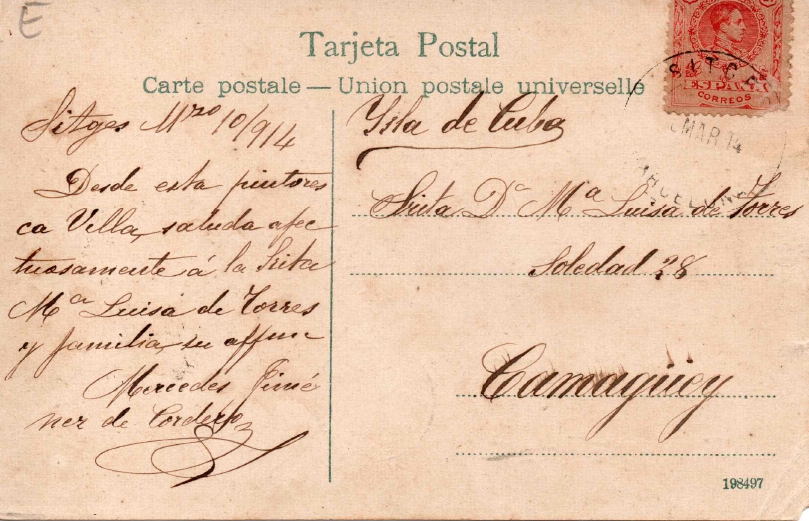 E
Tarjeta Postal
Carte postale — Union postale universelle
CORREOS
SITGES
MAR.14
BARCELONA
Sitges Mzo 10/914
Desde esta pintores
ca Villa, saluda afec
tuosamente á la Srita
Mª Luisa de Torres
y familia, su affma
Mercedes Jimé
nez de Cordero
Ysla de Cuba
Srita Dª Mª Luisa de Torres
Soledad 28
Camagüey
198497